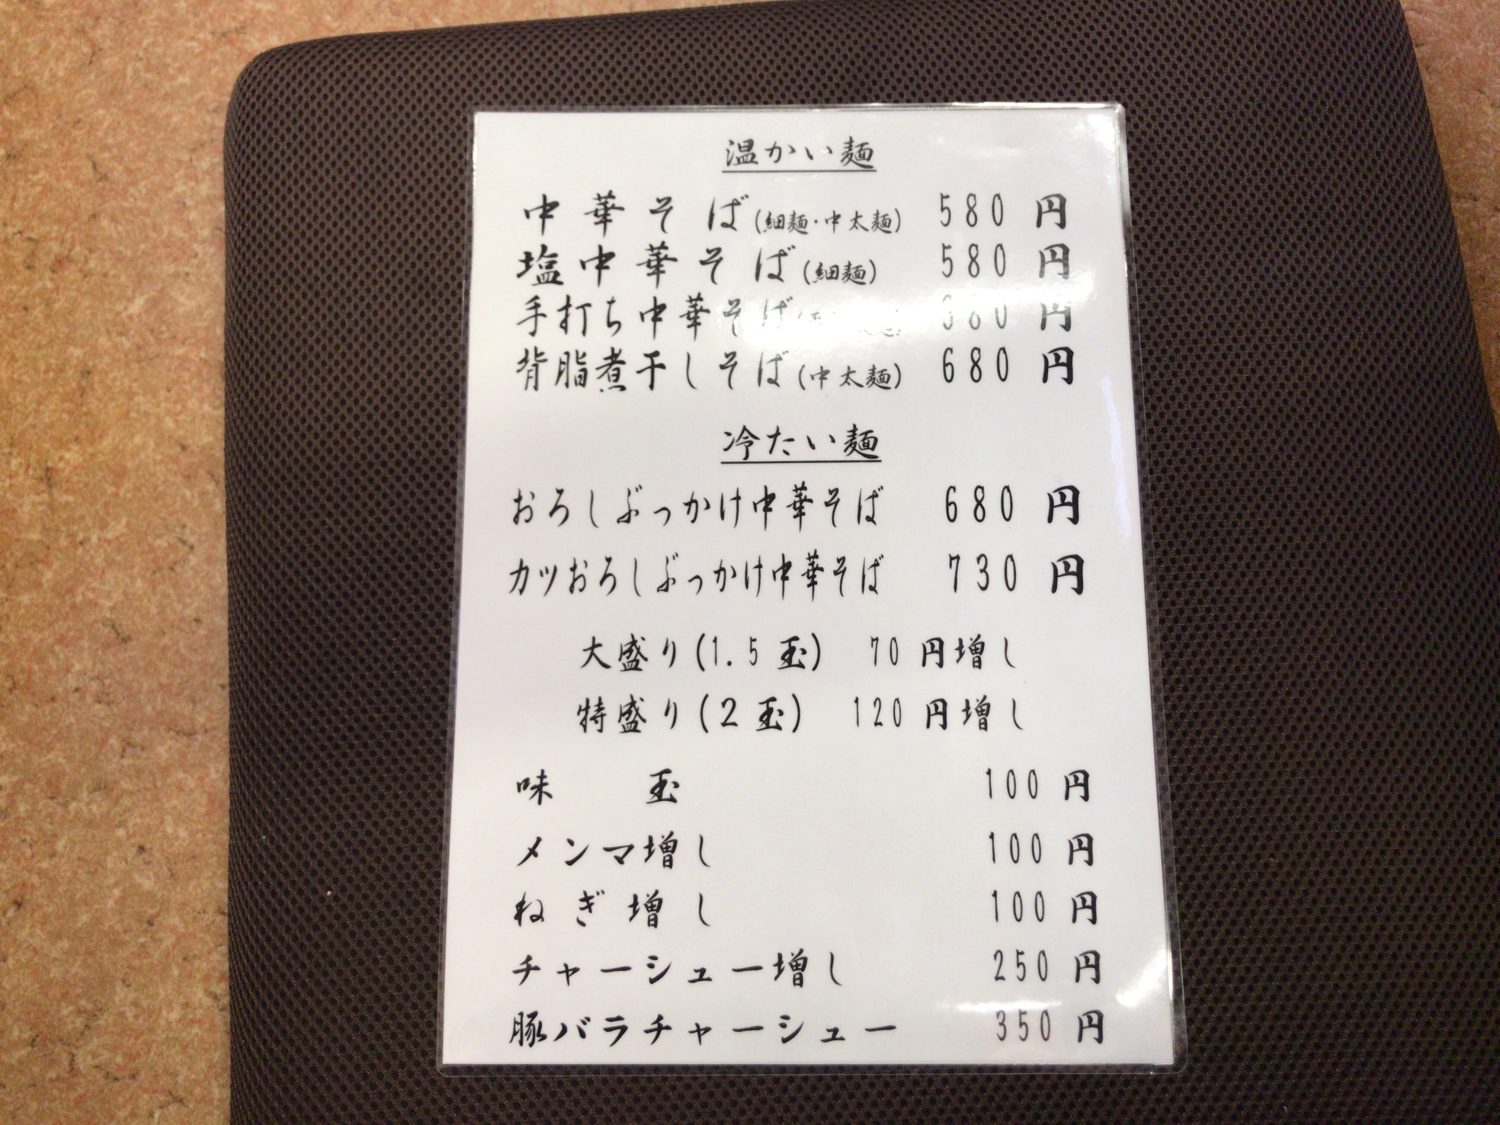 温かい麺
中華そば(細麺・中太麺) 580円
塩中華そば(細麺) 580円
手打ち中華そば 円
背脂煮干しそば(中太麺) 680円
冷たい麺
おろしぶっかけ中華そば 680円
カツおろしぶっかけ中華そば 730円
大盛り(1.5玉) 70円増し
特盛り(2玉) 120円増し
味玉 100円
メンマ増し 100円
ねぎ増し 100円
チャーシュー増し 250円
豚バラチャーシュー 350円